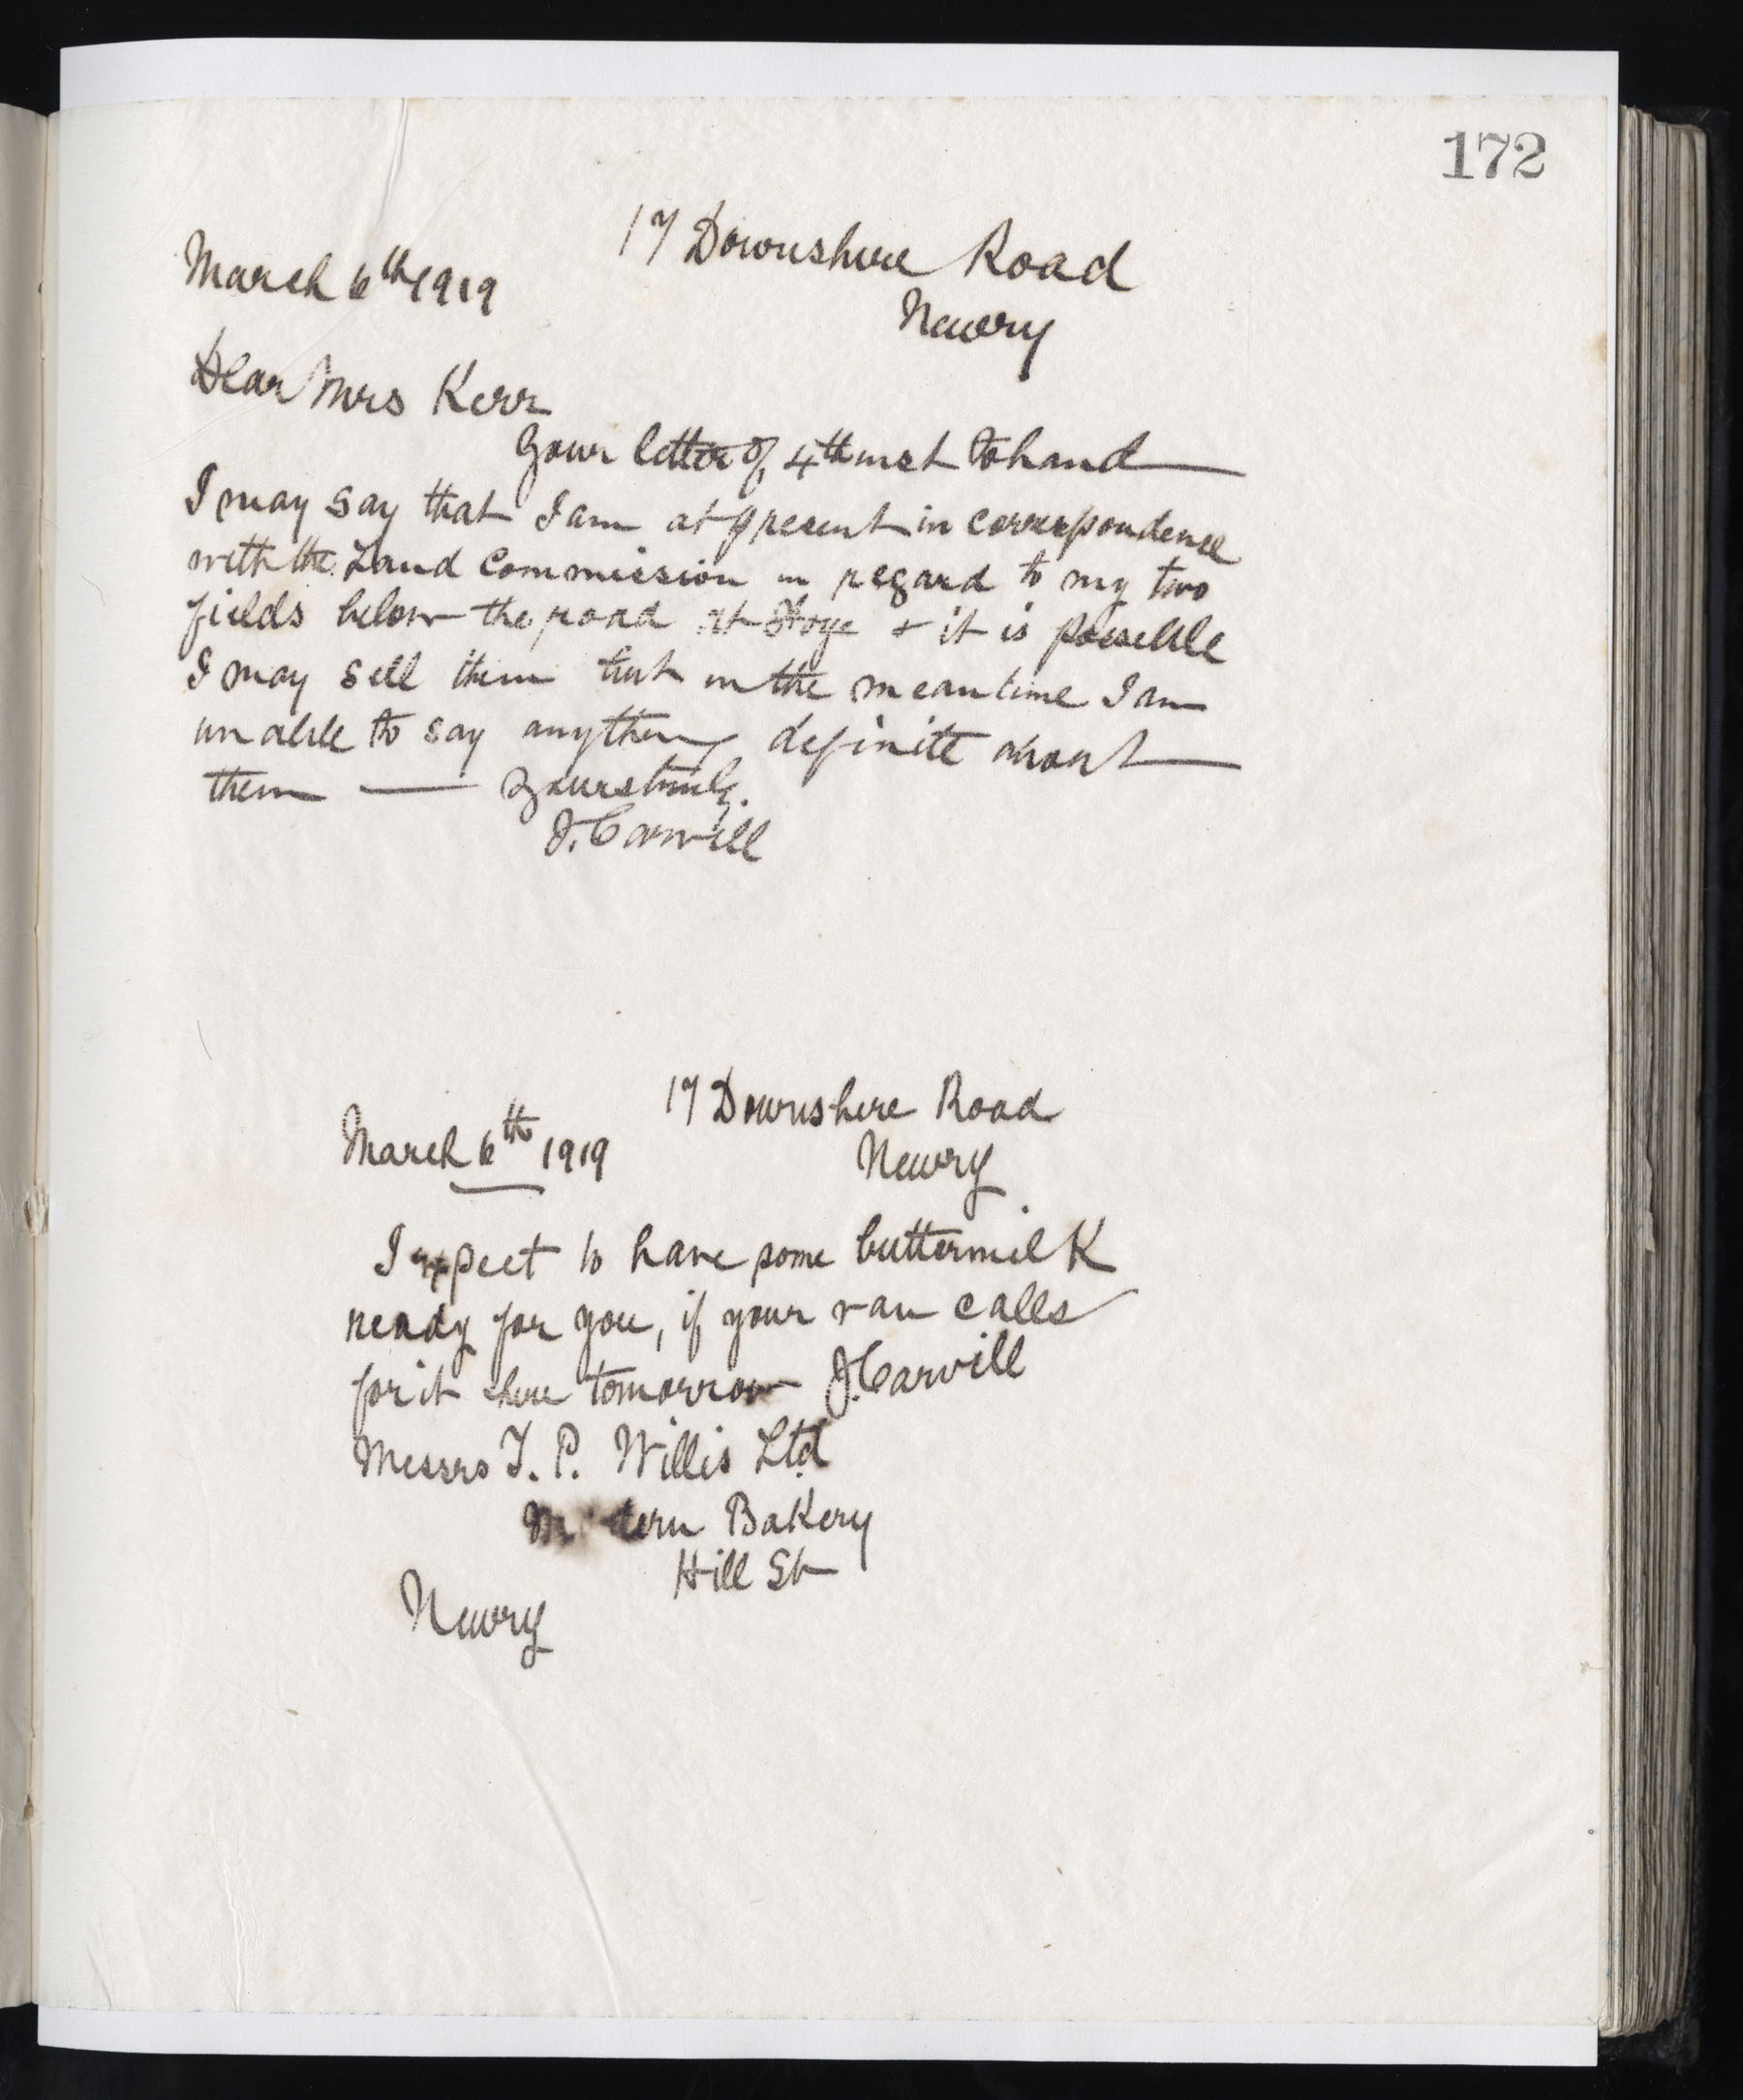 172
17 Downshire Road
March 6th 1919
Newry
Dear Mrs Kerr
Your letter of 4th inst to hand
I may say that I am at present in correspondence
with the Land Commission in regard to my two
fields below the road at & it is possible
I may sell them but in the meantime I am
unable to say anything definite about
them — yours truly.
J. Carvill
17 Downshire Road
March 6th 1919
Newry
I expect to have some buttermilk
ready for you, if your van calls
for it here tomorrow J. Carvill
Messrs T. P. Willis Ltd
Bakery
Hill St
Newry